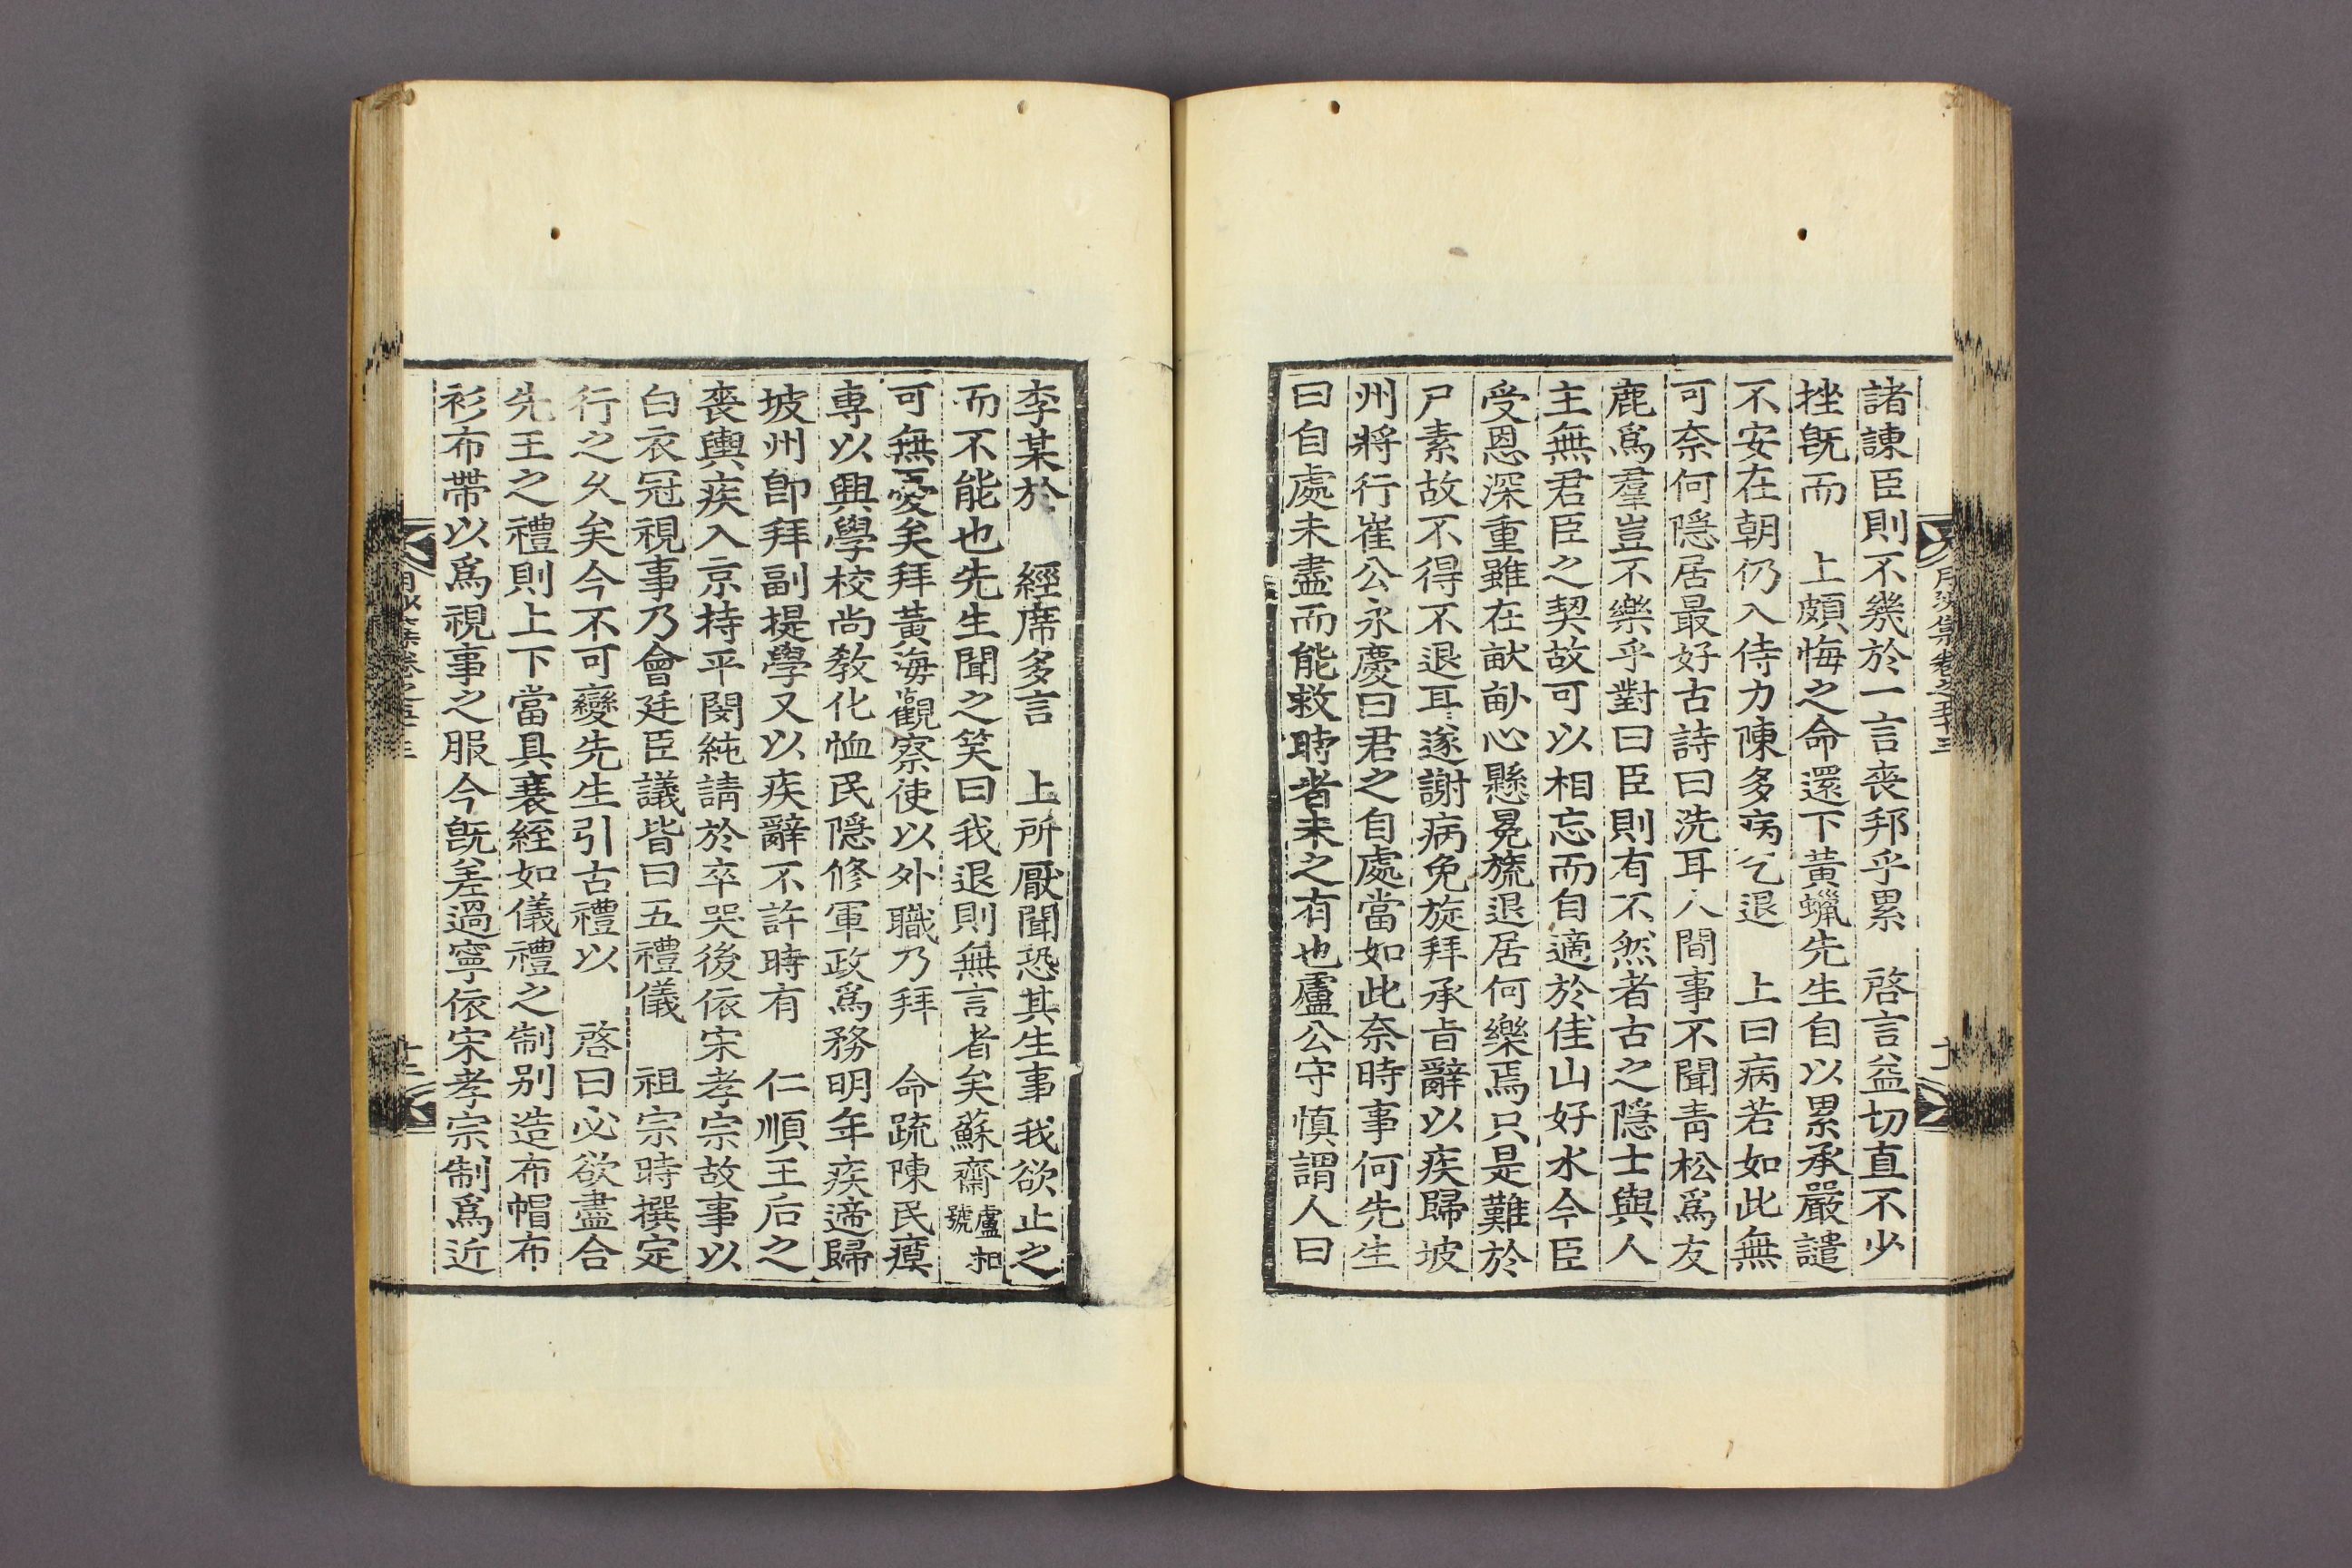 諸諫臣則不幾於一言喪邦乎累　啓言益切直不少
挫旣而　上頗悔之命還下黃蠟先生自以累承嚴譴
不安在朝仍入侍力陳多病乞退　上曰病若如此無
可奈何隱居最好古詩曰洗耳人間事不聞靑松爲友
鹿爲羣豈不樂乎對曰臣則有不然者古之隱士與人
主無君臣之契故可以相忘而自適於佳山好水今臣
受恩深重雖在畎畝心懸冕旒退居何樂焉只是難於
尸素故不得不退耳遂謝病免旋拜承旨辭以疾歸坡
州將行崔公永慶曰君之自處當如此奈時事何先生
曰自處未盡而能救時者未之有也盧公守愼謂人曰
李某於　經席多言　上所厭聞恐其生事我欲止之
而不能也先生聞之笑曰我退則無言者矣蘇齋盧相號
可無憂矣拜黃海觀察使以外職乃拜　命疏陳民瘼
專以興學校尙敎化恤民隱修軍政爲務明年疾遞歸
坡州卽拜副提學又以疾辭不許時有　仁順王后之
喪輿疾入京持平閔純請於卒哭後依宋孝宗故事以
白衣冠視事乃會廷臣議皆曰五禮儀　祖宗時撰定
行之久矣今不可變先生引古禮以　啓曰必欲盡合
先王之禮則上下當具衰絰如儀禮之制別造布帽布
衫布帶以爲視事之服今旣差過寧依宋孝宗制爲近
月沙集卷之五十三